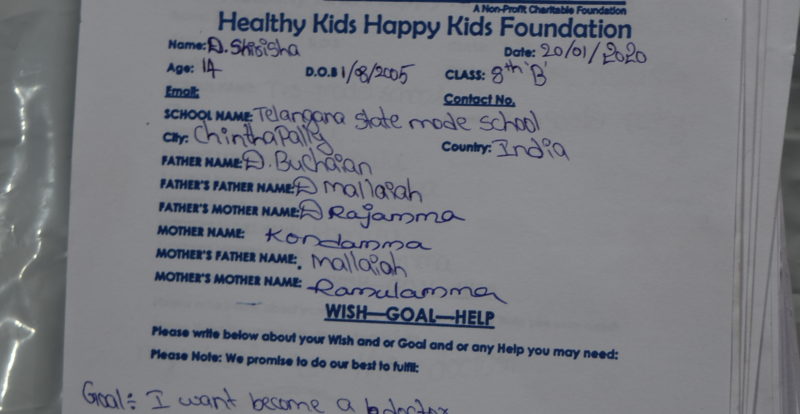 A Non-Profit Charitable Foundation
Healthy Kids Happy Kids Foundation
Name: D. Shirisha Date: 20/01/2020
Age: 14 D.O.B 1/8/2005 CLASS: 8th 'B'
Email: Contact No.
SCHOOL NAME: Telangana state mode school
City: Chinthapally Country: India
FATHER NAME: D. Buchaian
FATHER'S FATHER NAME: D mallaiah
FATHER'S MOTHER NAME: D Rajamma
MOTHER NAME: Kondamma
MOTHER'S FATHER NAME: mallaiah
MOTHER'S MOTHER NAME: Ramulamma
WISH—GOAL—HELP
Please write below about your Wish and or Goal and or any Help you may need:
Please Note: We promise to do our best to fulfil:
Goal: I want become a doctor